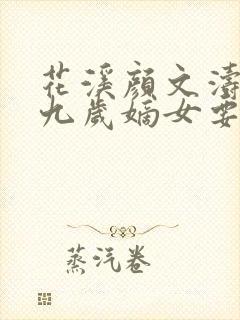 花溪顏文濤
九歲嫡女要
蒸汽卷